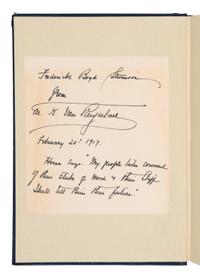 Frederick Boyd Stevenson
from
M. K. Van Rensselaer
February 20th 1917.
Hosea says "My people take counsel
of their sticks of wood & their staff
shall tell them their future."